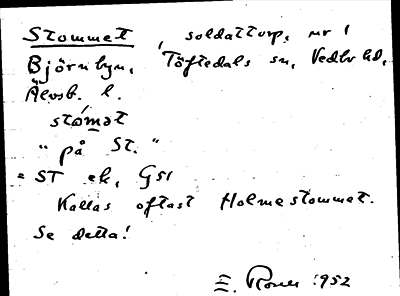 Stommet, soldattorp, nr 1
Björnbyn, Töftedals sn, Vedbo hd,
Älvsb. l.
stómət
"på St."
= ST ek, G51
Kallas oftast Holmestommet.
Se detta!
E. 1952